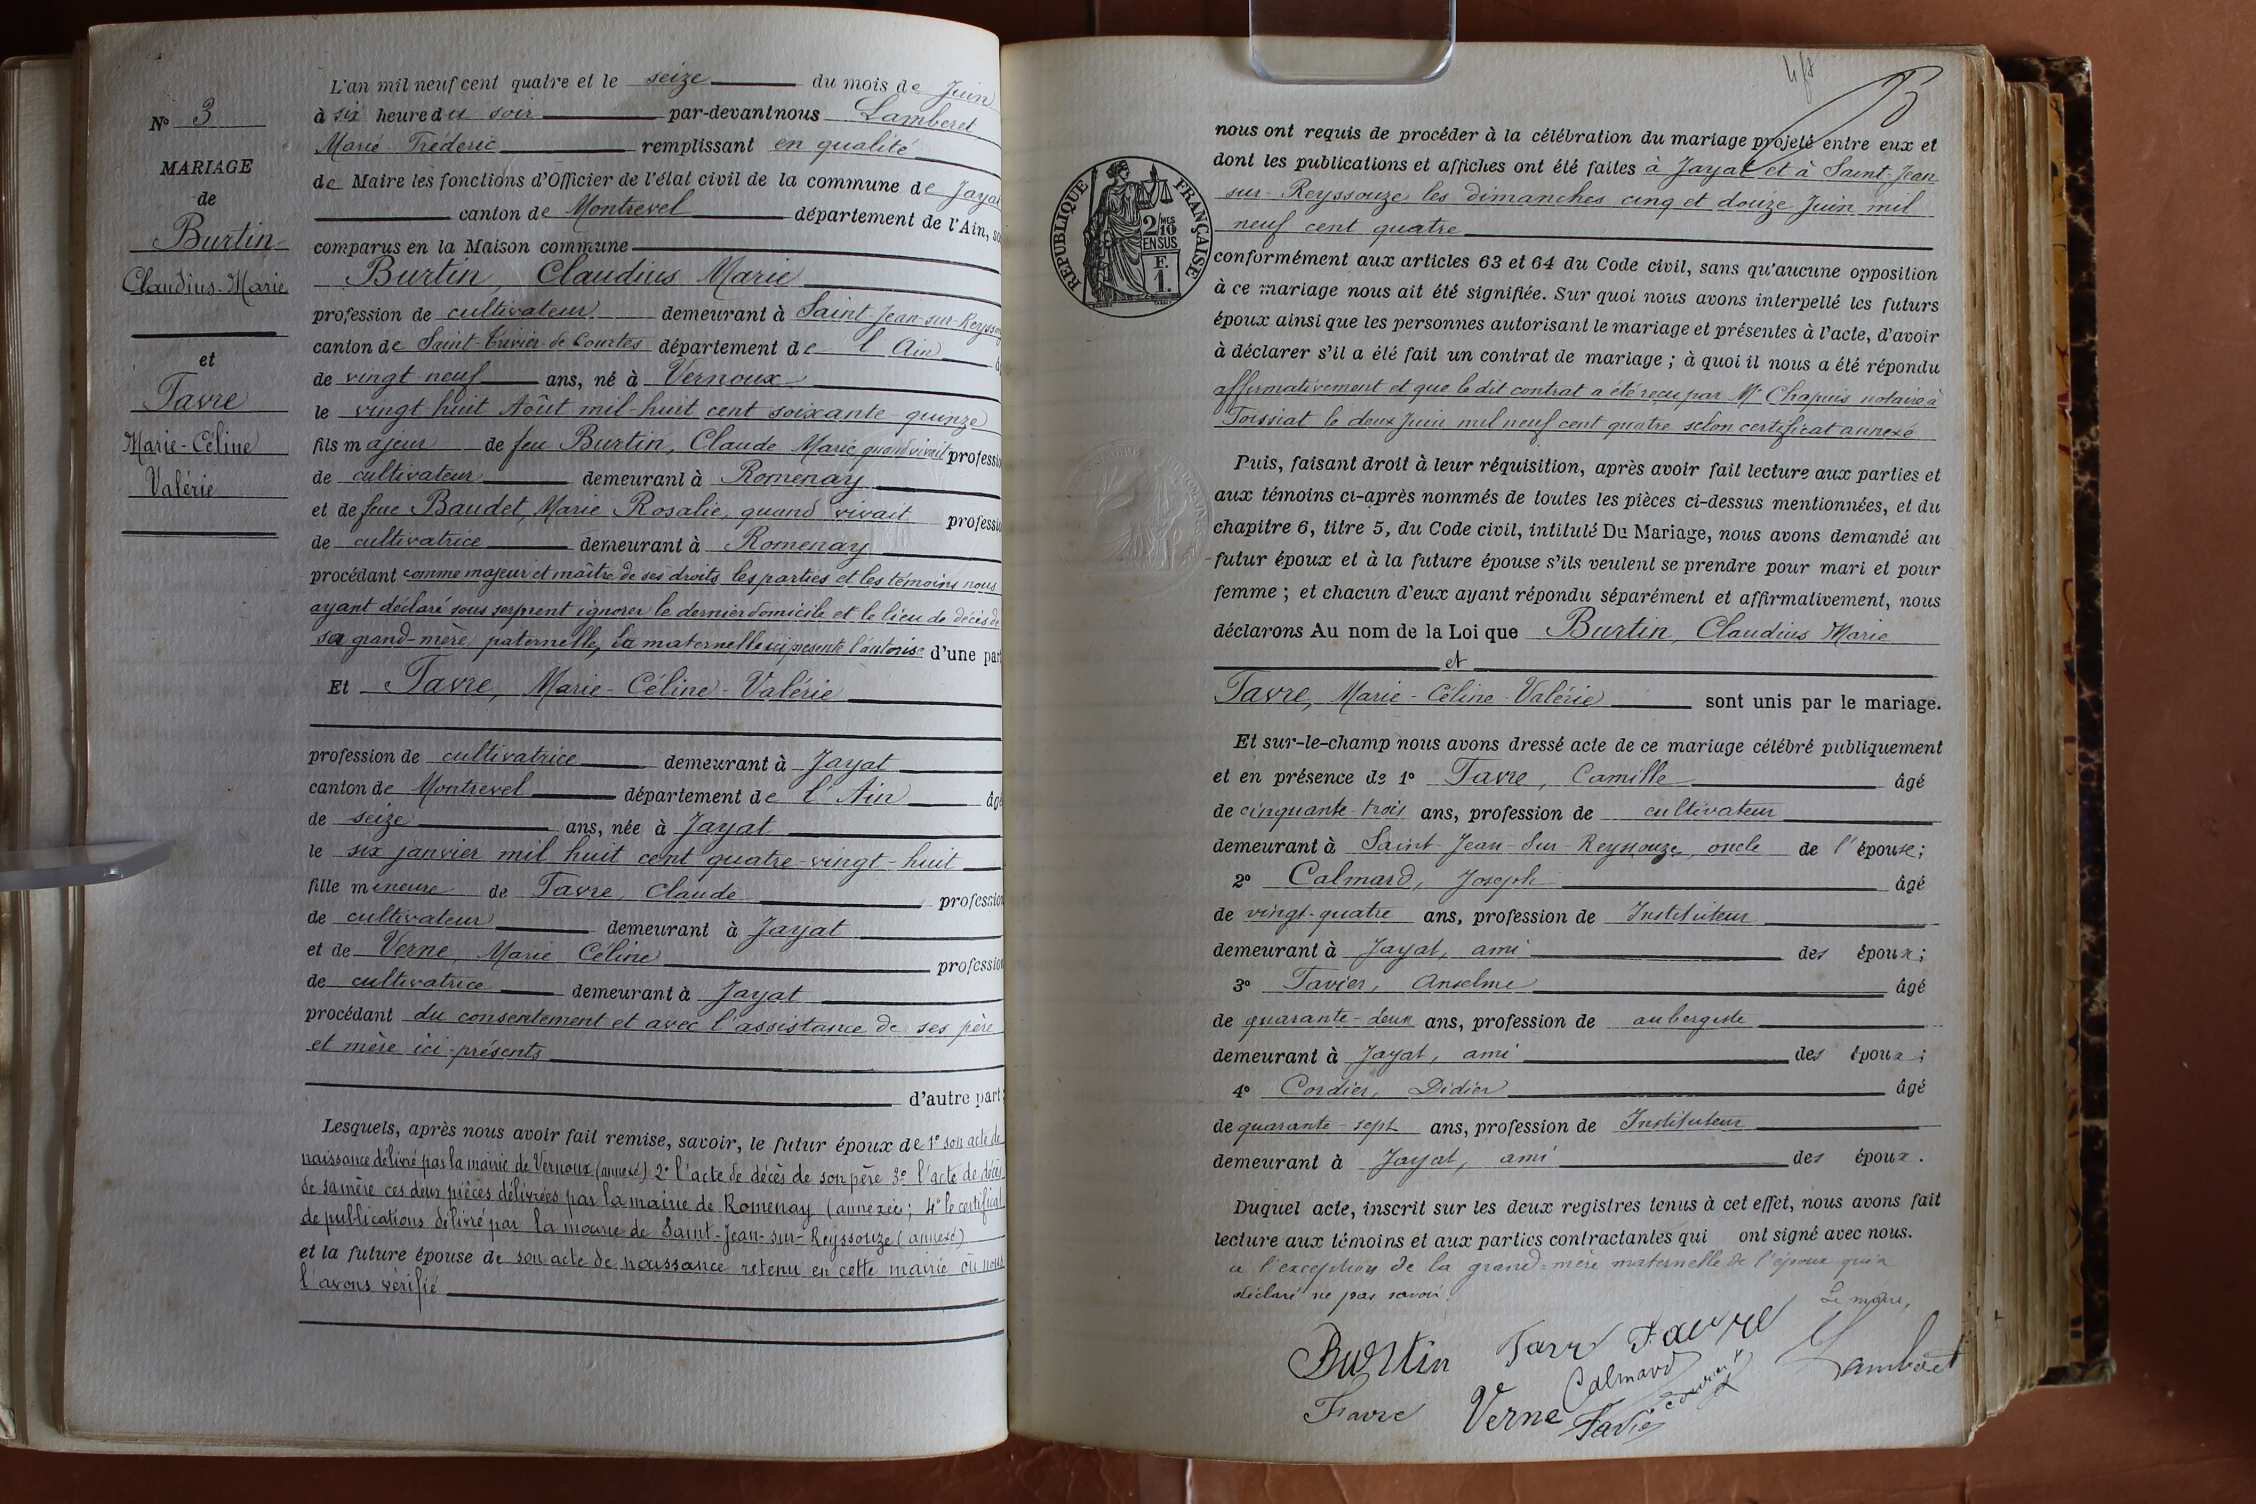 L'an mil neuf cent quatre et le seize du mois de Juin
à six heure du soir par-devant nous Lamberet
Marie Fréderic remplissant en qualité
de Maire les fonctions d'Officier de l'état civil de la commune de Jayat
canton de Montrevel département de l'Ain, so
comparus en la Maison commune
Burtin, Claudius Marie
profession de cultivateur demeurant à Saint-Jean-sur-Reyssouze
canton de Saint-Trivier de Courtes département de l'Ain â
de vingt-neuf ans, né à Vernoux
le vingt huit Août mil-huit cent soixante-quinze
fils majeur de feu Burtin, Claude Marie, quand vivait professio
de cultivateur demeurant à Romenay
et de feue Baudet, Marie Rosalie, quand vivait professio
de cultivatrice demeurant à Romenay
procédant comme majeur et maître de ses droits les parties et les témoins nous
ayant déclaré sous serment ignorer le dernier domicile et le lieu de décès de
sa grand-mère paternelle, la maternelle ici présente l'autorise d'une part
Et Favre, Marie-Céline-Valérie
profession de cultivatrice demeurant à Jayat
canton de Montrevel département de l'Ain âgé
de seize ans, née à Jayat
le six janvier mil huit cent quatre-vingt-huit
fille mineure de Favre, Claude profession
de cultivateur demeurant à Jayat
et de Verne, Marie Céline profession
de cultivatrice demeurant à Jayat
procédant du consentement et avec l'assistance de ses père
et mère ici présents
d'autre part :
Lesquels, après nous avoir fait remise, savoir, le futur époux de 1° son acte de
naissance délivré par la mairie de Vernoux (annexé) 2° l'acte de décès de son père 3° l'acte de décès
de sa mère ces deux pièces délivrées par la mairie de Romenay (annexées; 4° le certificat
de publications délivré par la mairie de Saint-Jean-sur-Reyssouze (annexé)
et la future épouse de son acte de naissance retenu en cette mairie où nous
l'avons vérifié
N° 3
MARIAGE
de
Burtin
Claudius-Marie
et
Favre
Marie-Céline
Valérie
nous ont requis de procéder à la célébration du mariage projeté entre eux et
dont les publications et affiches ont été faites à Jayat et à Saint-Jean
sur-Reyssouze les dimanches cinq et douze Juin mil
neuf cent quatre
conformément aux articles 63 et 64 du Code civil, sans qu'aucune opposition
à ce mariage nous ait été signifiée. Sur quoi nous avons interpellé les futurs
époux ainsi que les personnes autorisant le mariage et présentes à l'acte, d'avoir
à déclarer s'il a été fait un contrat de mariage ; à quoi il nous a été répondu
affirmativement et que le dit contrat a été reçu par Me Chapuis notaire à
Foissiat le deux Juin mil neuf cent quatre selon certificat annexé
Puis, faisant droit à leur réquisition, après avoir fait lecture aux parties et
aux témoins ci-après nommés de toutes les pièces ci-dessus mentionnées, et du
chapitre 6, titre 5, du Code civil, intitulé Du Mariage, nous avons demandé au
futur époux et à la future épouse s'ils veulent se prendre pour mari et pour
femme ; et chacun d'eux ayant répondu séparément et affirmativement, nous
déclarons Au nom de la Loi que Burtin, Claudius Marie
et
Favre, Marie-Céline-Valérie sont unis par le mariage.
Et sur-le-champ nous avons dressé acte de ce mariage célébré publiquement
et en présence de 1° Favre, Camille âgé
de cinquante-trois ans, profession de cultivateur
demeurant à Saint-Jean-sur-Reyssouze, oncle de l'épouse;
2° Calmard, Joseph âgé
de vingt-quatre ans, profession de Instituteur
demeurant à Jayat, ami des époux;
3° Favier, Anselme âgé
de quarante-deux ans, profession de aubergiste
demeurant à Jayat, ami des époux;
4° Cordier, Didier âgé
de quarante-sept ans, profession de Instituteur
demeurant à Jayat, ami des époux.
Duquel acte, inscrit sur les deux registres tenus à cet effet, nous avons fait
lecture aux témoins et aux parties contractantes qui ont signé avec nous.
à l'exception de la grand-mère maternelle de l'époux qui a
déclaré ne pas savoir.
Le maire,
Burtin Favre Favre Lamberet
Calmard
Favre Verne Favier
RÉPUBLIQUE FRANÇAISE
2/10
EN SUS
F.
1.